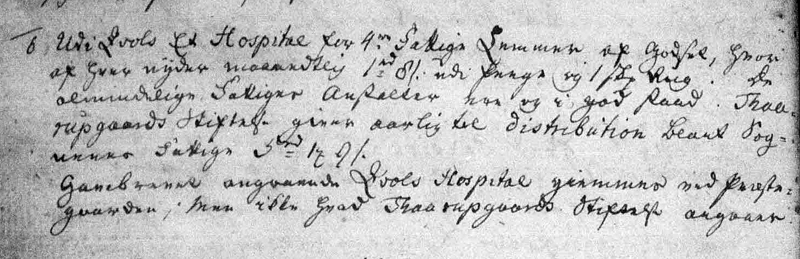 6 Udi Qvols Et Hospital for 4re Fattige Lemmer af Godset, hvor
af hver nyder maanedtlig 1rd 8s. udi Penge og 1 Skp Rug. De
almindelige Fattiges Anstalter ere og i god stand. Thaa-
rupgaards Stiftelse giver aarlig til distribution blant Sog-
nenes Fattige 5rd 1s.
Gavebrevet angaaende Qvols Hospital giemmes ved Præste-
gaarden, men ikke hvad Thaarupgaards Stiftelse angaaer.